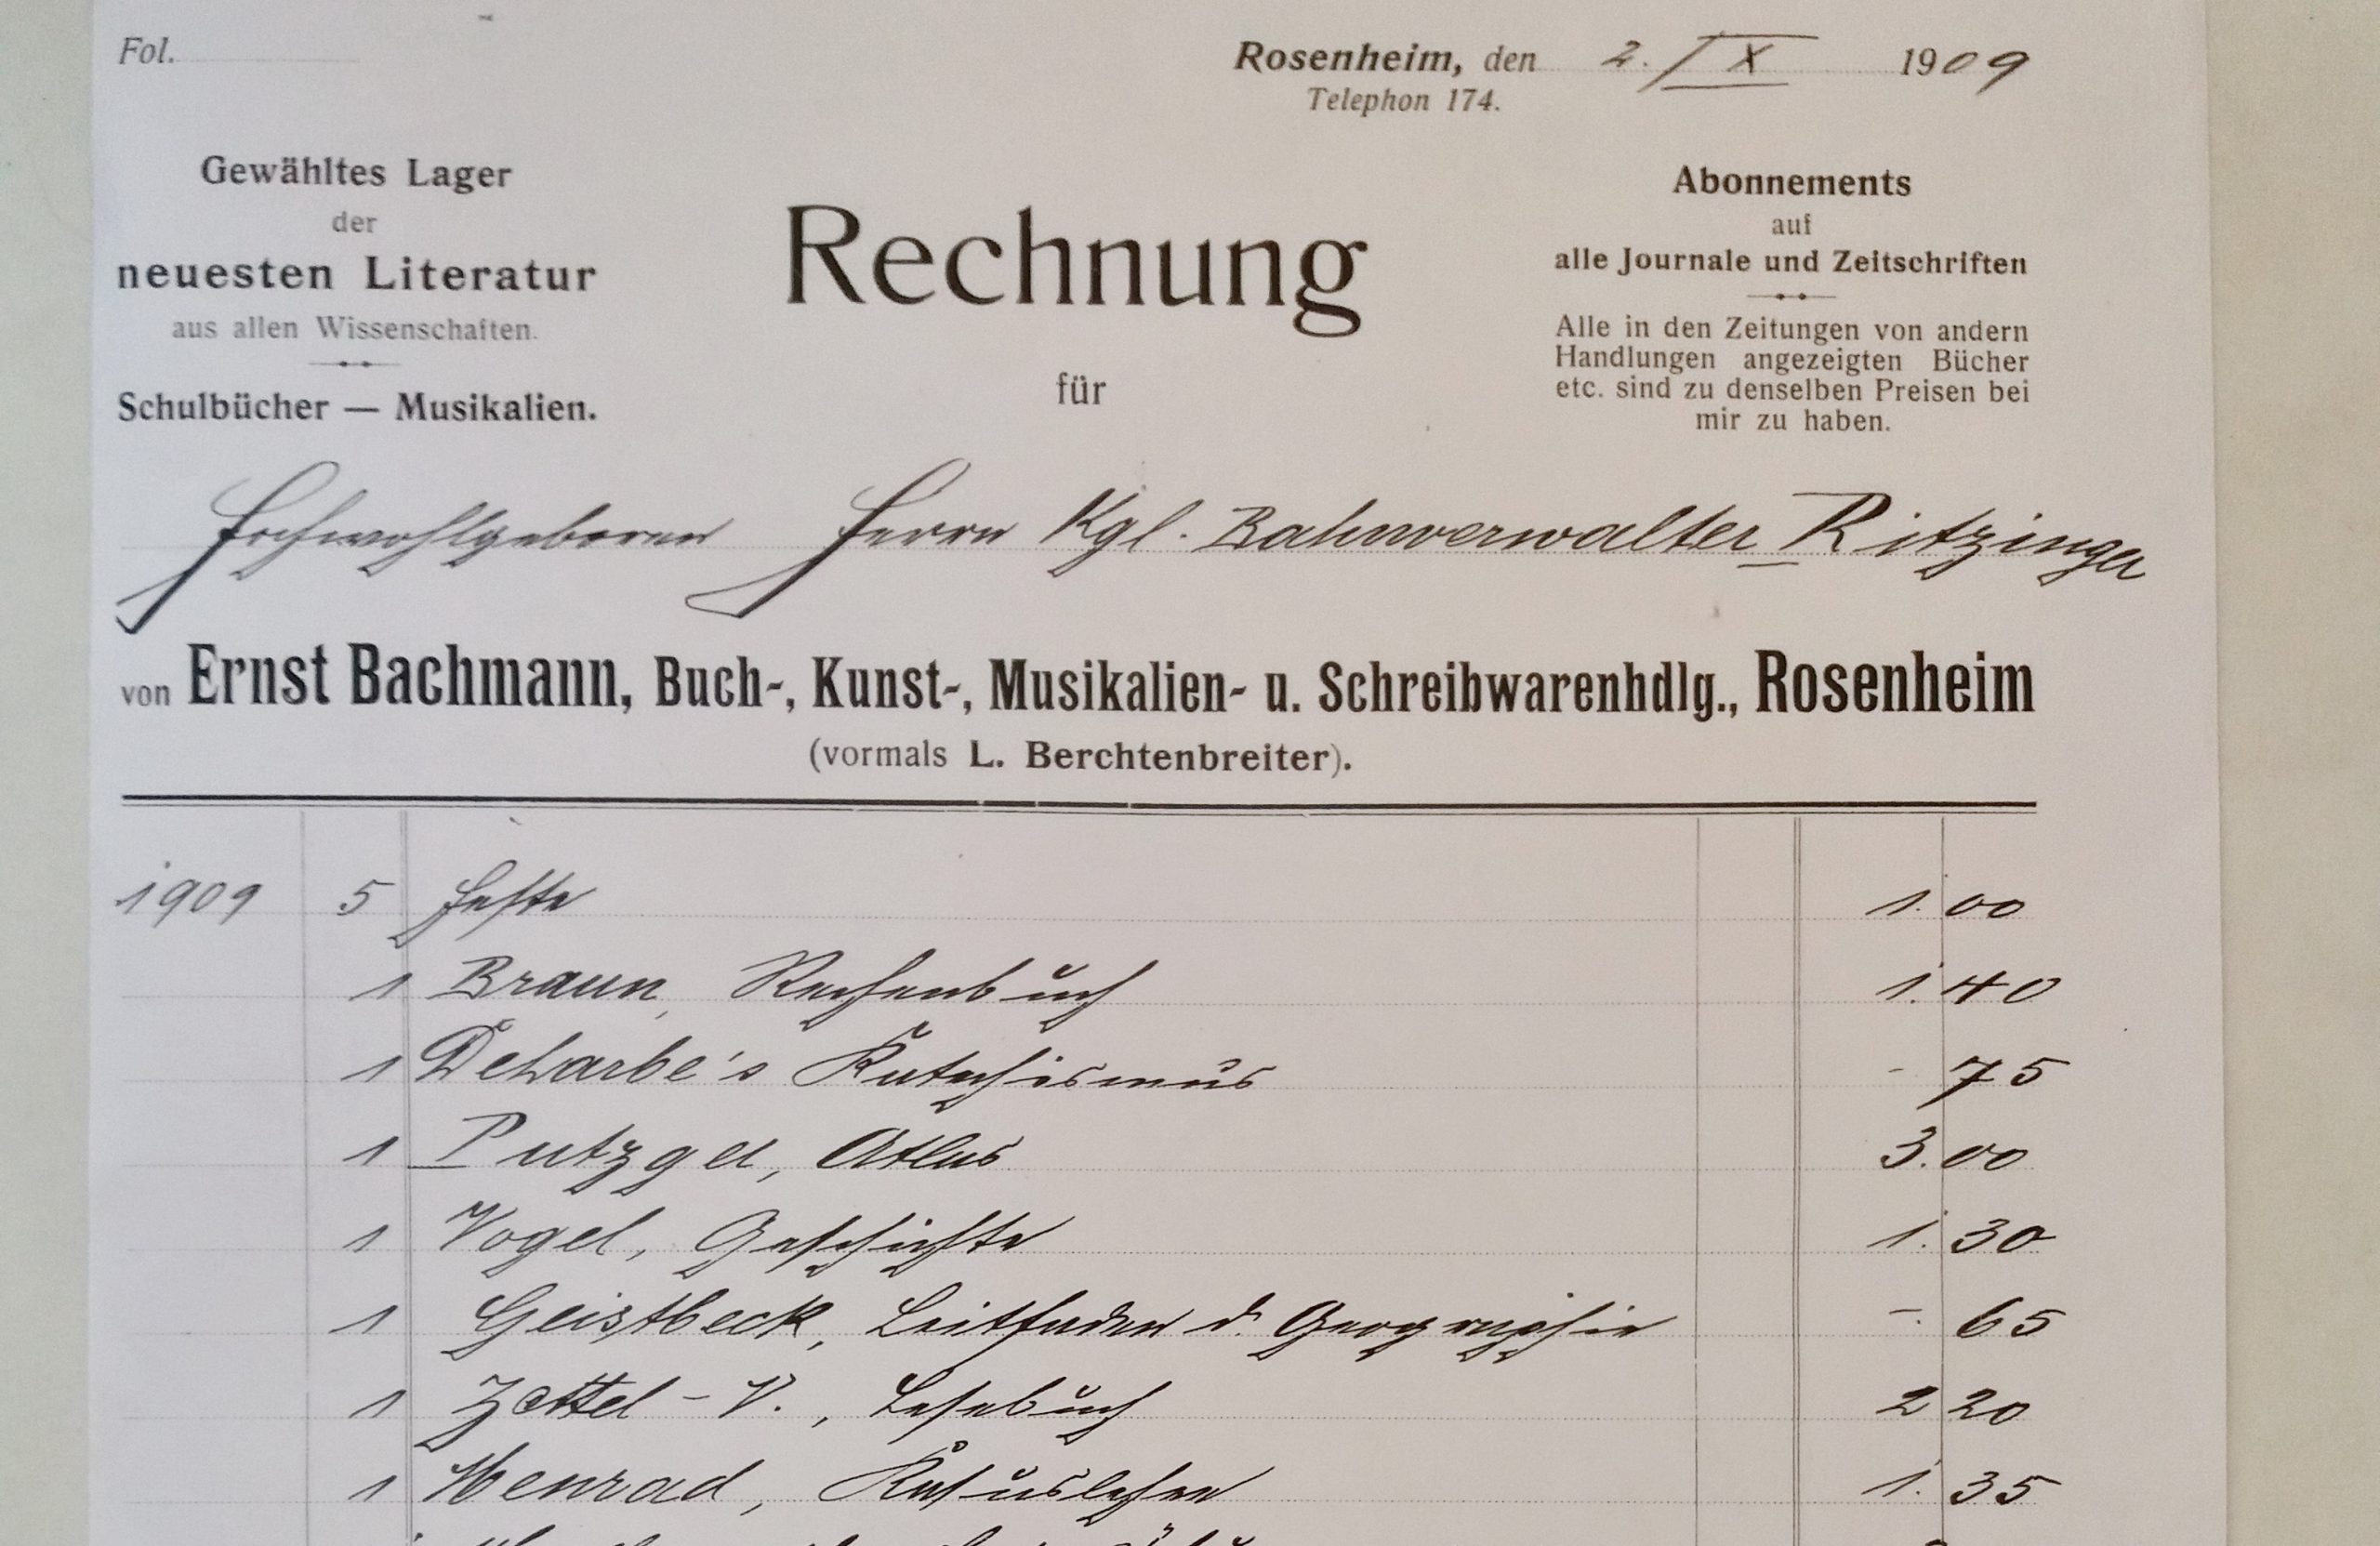 Fol.
Rosenheim, den 2. IX 1909
Telephon 174.
Gewähltes Lager
der
neuesten Literatur
aus allen Wissenschaften.
Schulbücher — Musikalien.
Rechnung
für
Abonnements
auf
alle Journale und Zeitschriften
Alle in den Zeitungen von andern
Handlungen angezeigten Bücher
etc. sind zu denselben Preisen bei
mir zu haben.
Hochwohlgeboren Herrn Kgl. Bahnverwalter Ritzinger
von Ernst Bachmann, Buch-, Kunst-, Musikalien- u. Schreibwarenhdlg., Rosenheim
(vormals L. Berchtenbreiter).
1909 5 Hefte 1.00
1 Braun, Rechenbuch 1.40
1 Deharbe's Katechismus - 75
1 Putzger, Atlas 3.00
1 Vogel, Geschichte 1.30
1 Geistbeck, Leitfaden d. Geographie -. 65
1 Zettel - V., Lesebuch 2 20
1 Menrad, Kasuslehre 1. 35